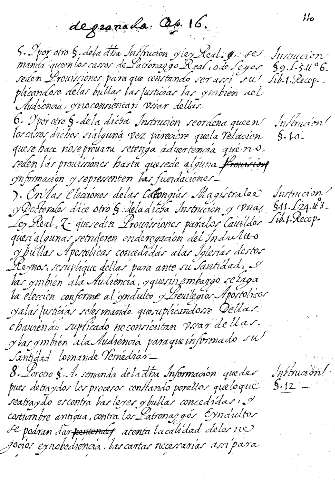 de granada. Cap. 16.
110
5. Y por otro §. de la dha Instrucion, y ley Real. 9. se
manda que en los casos de Patronazgo Real, o de leyes
se den Provisiones para que constando ser assi, su
plicandose de las bullas las justicias las ymbien al
Audiencia, y no consientan vsar dellas.
Instrucion
§. 9. l. 5. tt. 6.
lib. 1. Recop.
6. Y por otro §. de la dicha Instrucion se encarga que en
los casos dichos si alguna vez pareciere que la relacion
que se hace no es precisa se tenga advertencia que no
se den las provisiones hasta que se de alguna
ynformacion, y se presenten las fundaciones.
Instrucion
§. 10.
7. En las Elecciones de las Canongias Magistrales
y Doctorales dice otro §. de la dicha Instrucion, y vna
Ley Real, que se den Provisiones para los Cavildos
que si algunas se tuvieren en derogacion del Indulto
y bullas Apostolicas concedidas a las Iglesias destos
Reynos, se suplique dellas para ante su Santidad, y
las ymbien a la Audiencia, y que sin embargo se haga
la eleccion conforme al yndulto, y Previlegios Apostolicos
y a las justicias se les manda que suplicandose dellas
y haviendo suplicado no consientan vsar dellas
y las ymbien a la Audiencia para que informado su
Santidad lo mande Remediar.
Instrucion
§. 11. l. 24. tt. 3.
lib. 1. Recop.
8. Por otro §. se manda de la dha Informacion que des
pues de traydos los procesos constando por ellos que lo que
se a traydo es contra las leyes, y bullas concedidas, y
costumbre antigua, contra los Patronazgos e yndultos
se podran dar a costa la calidad de los ne
gocios e ynobediencia, las cartas necesarias assi para
Instrucion
§. 12.